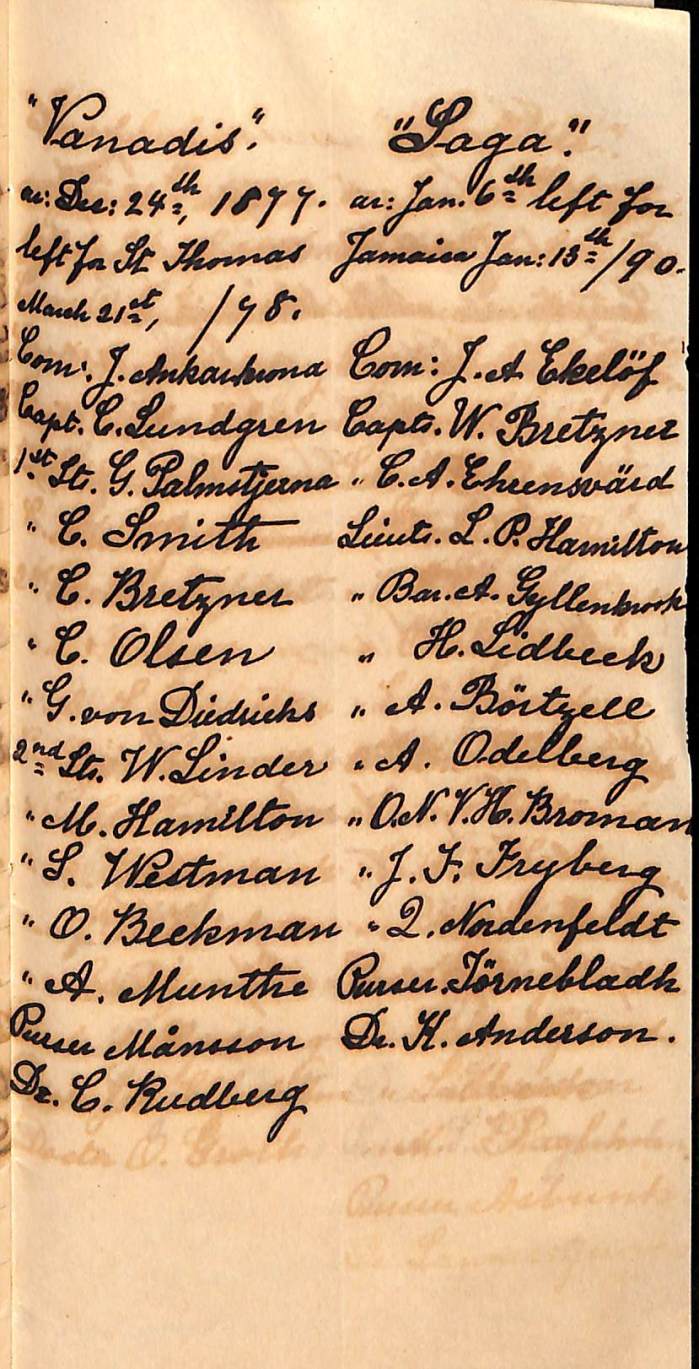 "Vanadis".
ar: Dec: 24th, 1877.
left for St Thomas
March 21st, /78.
Com: J. Ankarkrona
Capt. C. Lundgren
1st Lts. G. Palmstjerna
" C. Smith
" C. Bretzner
" C. Olsen
" G. von Diedrichs
2nd Lts. W. Linder
" M. Hamilton
" S. Westman
" O. Beckman
" A. Munthe
Purser Månsson
Dr. C. Rudberg
"Saga".
ar: Jan. 6th left for
Jamaica Jan: 13th /90.
Com: J. A Ekelöf
Capts. W. Bretzner
" C. A. Ehrensvärd
Lieuts. L. P. Hamilton
" Bar. A. Gyllenkrook
" H. Lidbeck
" A. Börtzell
" A. Odelberg
" O. N. V. H. Broman
" J. F. Fryberg
" Q. Nordenfeldt
Purser. Törnebladh
Dr. K. Anderson.